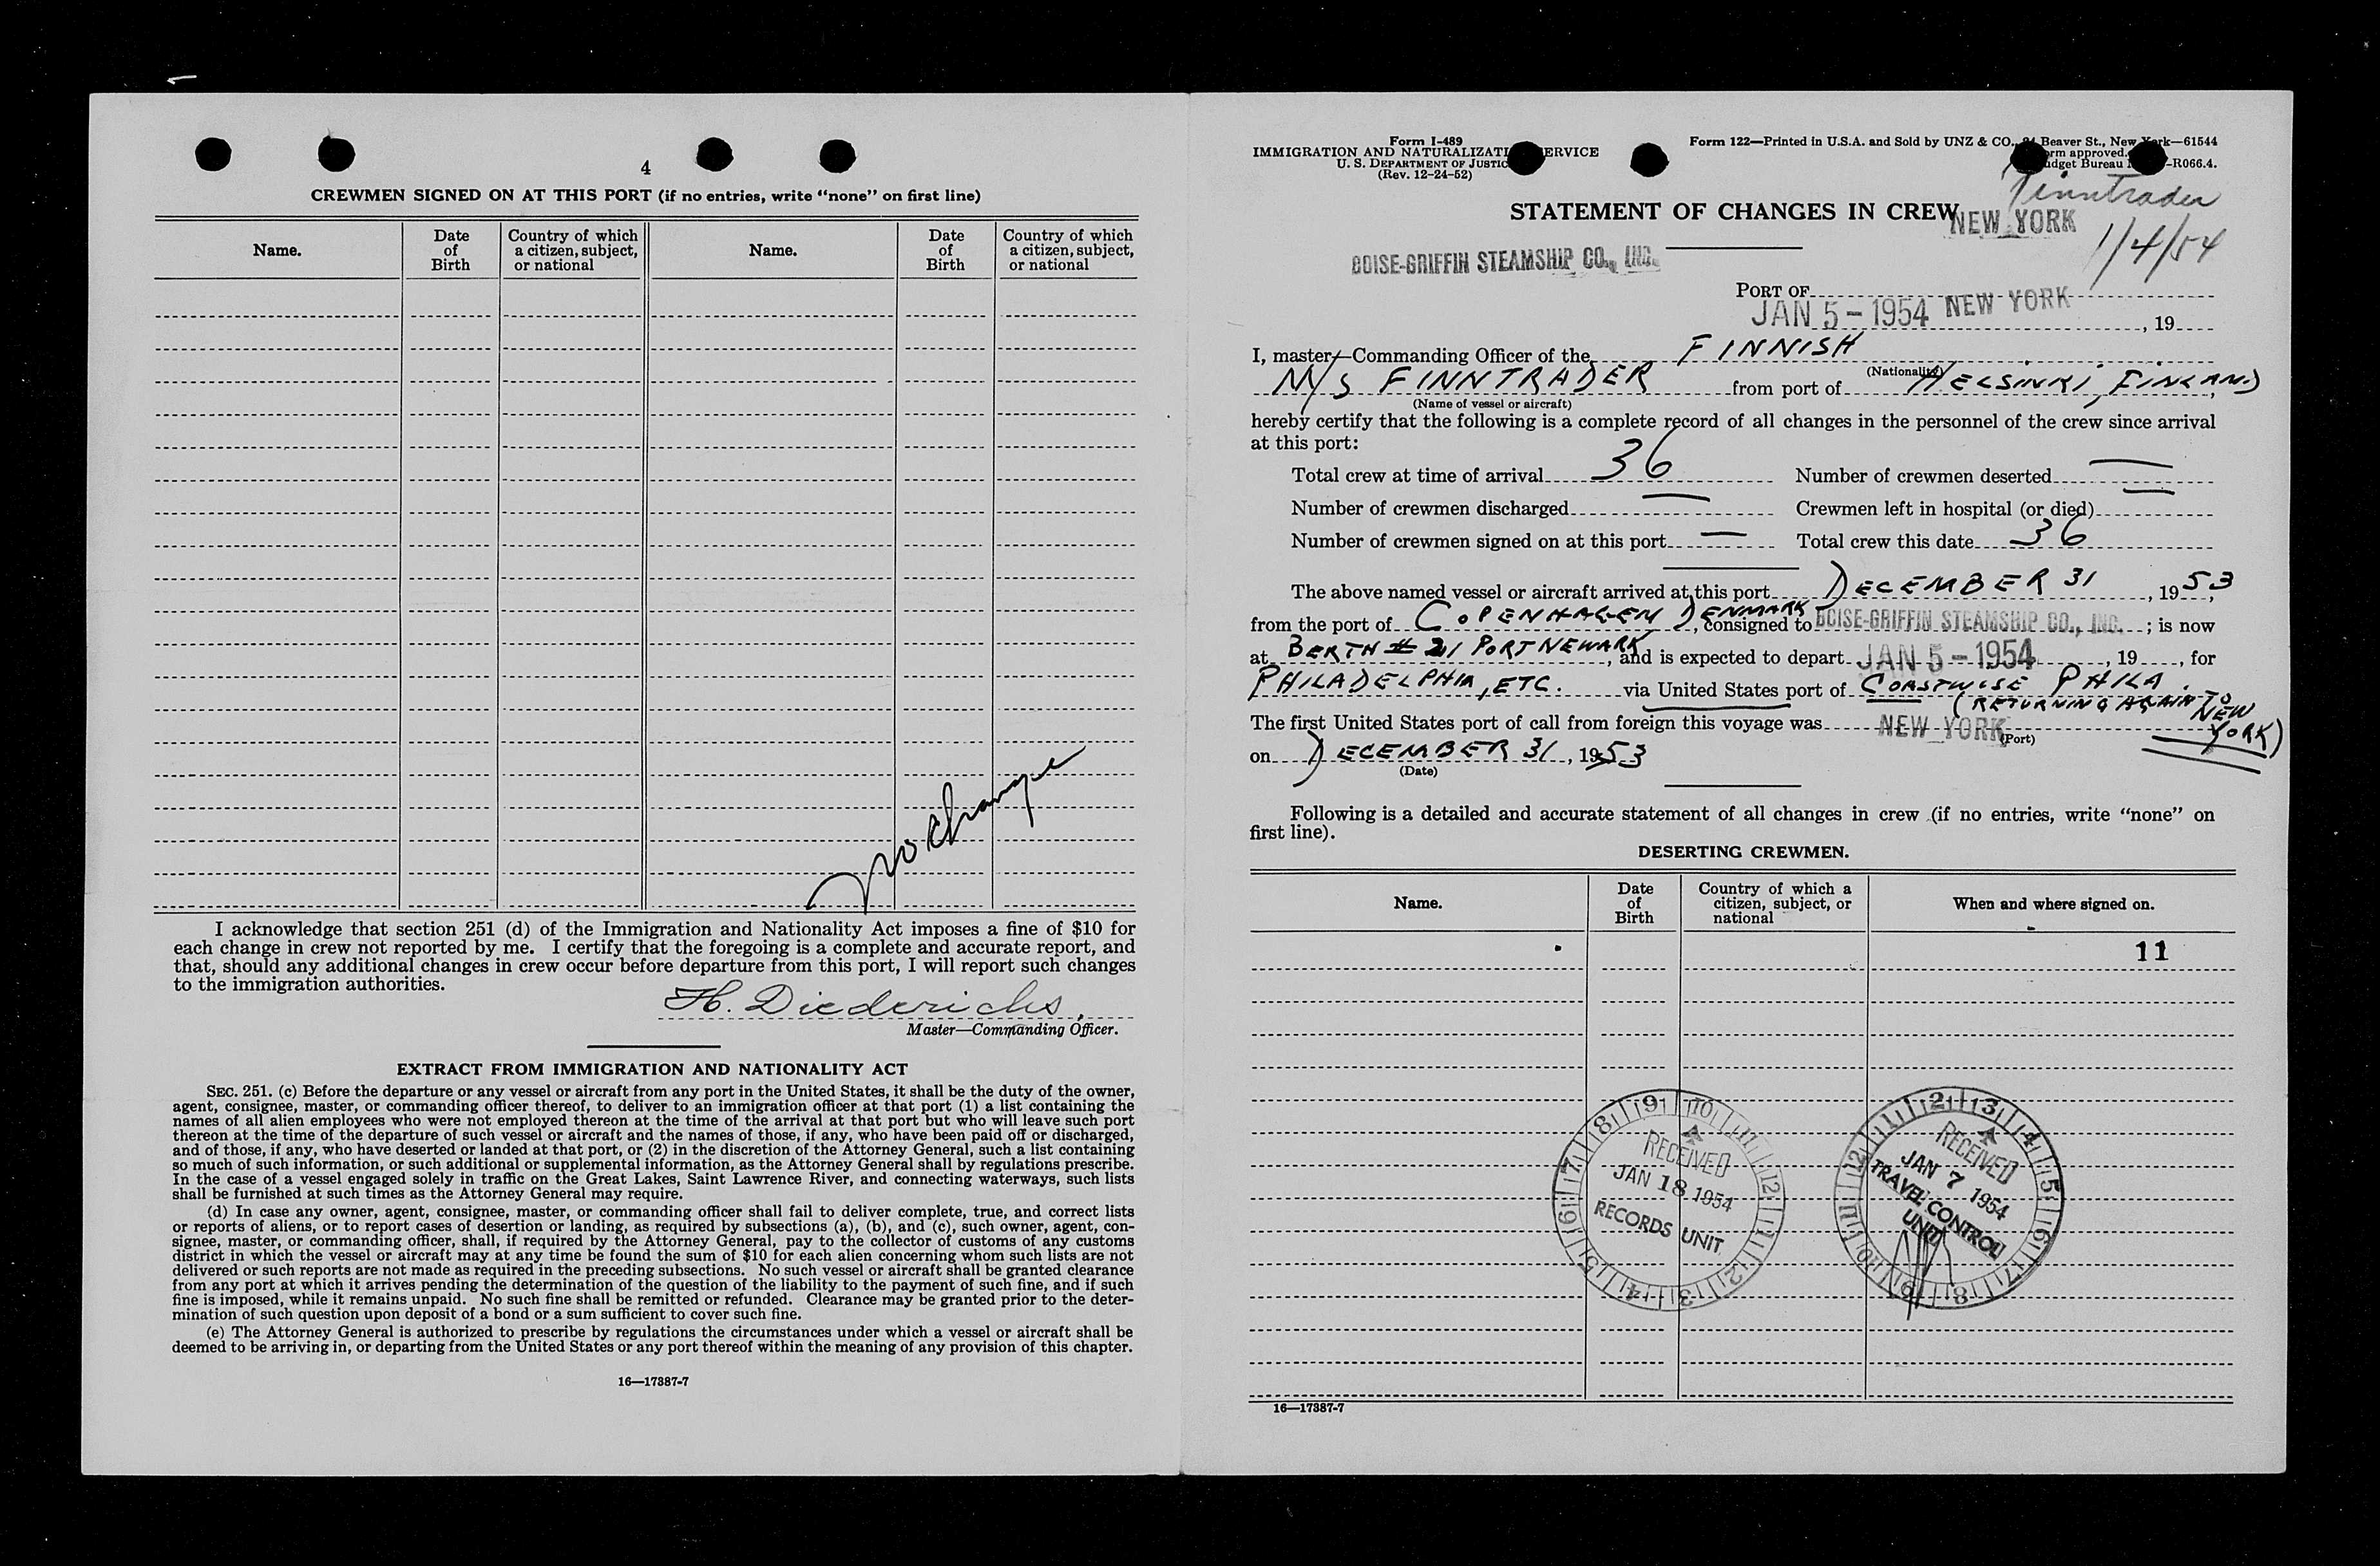 4
CREWMEN SIGNED ON AT THIS PORT (if no entries, write “none” on first line)
Name. Date of Birth Country of which a citizen, subject, or national Name. Date of Birth Country of which a citizen, subject, or national
no change
I acknowledge that section 251 (d) of the Immigration and Nationality Act imposes a fine of $10 for
each change in crew not reported by me. I certify that the foregoing is a complete and accurate report, and
that, should any additional changes in crew occur before departure from this port, I will report such changes
to the immigration authorities.
H. Diederichs,
Master—Commanding Officer.
EXTRACT FROM IMMIGRATION AND NATIONALITY ACT
SEC. 251. (c) Before the departure or any vessel or aircraft from any port in the United States, it shall be the duty of the owner,
agent, consignee, master, or commanding officer thereof, to deliver to an immigration officer at that port (1) a list containing the
names of all alien employees who were not employed thereon at the time of the arrival at that port but who will leave such port
thereon at the time of the departure of such vessel or aircraft and the names of those, if any, who have been paid off or discharged,
and of those, if any, who have deserted or landed at that port, or (2) in the discretion of the Attorney General, such a list containing
so much of such information, or such additional or supplemental information, as the Attorney General shall by regulations prescribe.
In the case of a vessel engaged solely in traffic on the Great Lakes, Saint Lawrence River, and connecting waterways, such lists
shall be furnished at such times as the Attorney General may require.
(d) In case any owner, agent, consignee, master, or commanding officer shall fail to deliver complete, true, and correct lists
or reports of aliens, or to report cases of desertion or landing, as required by subsections (a), (b), and (c), such owner, agent, con-
signee, master, or commanding officer, shall, if required by the Attorney General, pay to the collector of customs of any customs
district in which the vessel or aircraft may at any time be found the sum of $10 for each alien concerning whom such lists are not
delivered or such reports are not made as required in the preceding subsections. No such vessel or aircraft shall be granted clearance
from any port at which it arrives pending the determination of the question of the liability to the payment of such fine, and if such
fine is imposed, while it remains unpaid. No such fine shall be remitted or refunded. Clearance may be granted prior to the deter-
mination of such question upon deposit of a bond or a sum sufficient to cover such fine.
(e) The Attorney General is authorized to prescribe by regulations the circumstances under which a vessel or aircraft shall be
deemed to be arriving in, or departing from the United States or any port thereof within the meaning of any provision of this chapter.
16—17387-7
Form I-489
IMMIGRATION AND NATURALIZATI ERVICE
U. S. DEPARTMENT OF JUSTIC
(Rev. 12-24-52)
Form 122—Printed in U.S.A. and Sold by UNZ & CO., Beaver St., New York—61544
orm approved.
dget Bureau -R066.4.
Finntrader
STATEMENT OF CHANGES IN CREW
NEW YORK
1/4/54
BOISE-GRIFFIN STEAMSHIP CO., INC.
PORT OF NEW YORK
JAN 5 - 1954 , 19
I, master—Commanding Officer of the FINNISH
(Nationality)
M/S FINNTRADER from port of HELSINKI, FINLAND,
(Name of vessel or aircraft)
hereby certify that the following is a complete record of all changes in the personnel of the crew since arrival
at this port:
Total crew at time of arrival 36 Number of crewmen deserted —
Number of crewmen discharged — Crewmen left in hospital (or died) —
Number of crewmen signed on at this port — Total crew this date 36
The above named vessel or aircraft arrived at this port DECEMBER 31, 1953,
from the port of COPENHAGEN DENMARK, consigned to BOISE-GRIFFIN STEAMSHIP CO., INC. ; is now
at BERTH # 21 PORT NEWARK, and is expected to depart JAN 5 - 1954, 19 , for
PHILADELPHIA, ETC. via United States port of COASTWISE PHILA.
(RETURNING AGAIN TO NEW YORK)
The first United States port of call from foreign this voyage was NEW YORK
(Port)
on DECEMBER 31, 1953
(Date)
Following is a detailed and accurate statement of all changes in crew (if no entries, write “none” on
first line).
DESERTING CREWMEN.
Name. Date of Birth Country of which a citizen, subject, or national When and where signed on.
11
RECEIVED
JAN 18 1954
RECORDS UNIT
RECEIVED
JAN 7 1954
TRAVEL CONTROL
UNIT
16—17387-7